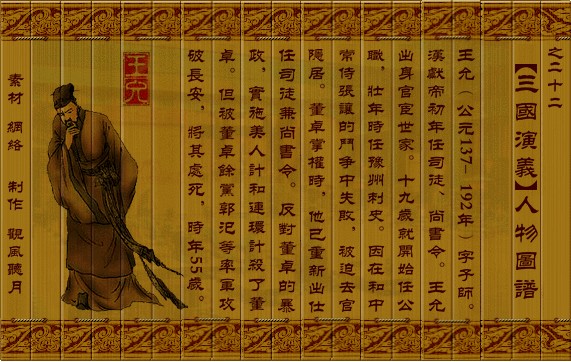 之二十二
【三國演義】人物圖譜
王允（公元137-192年）字子師。
漢獻帝初年任司徒、尚書令。王允
出身官宦世家。十九歲就開始任公
職，壯年時任豫州刺史。因在和中
常侍張讓的鬥爭中失敗，被迫去官
隱居。董卓掌權時，他已重新出仕
任司徒兼尚書令。反對董卓的暴
政，實施美人計和連環計殺了董
卓。但被董卓餘黨郭汜等率軍攻
破長安，將其處死，時年55歲。
王允
素材 網絡 制作 觀風聽月